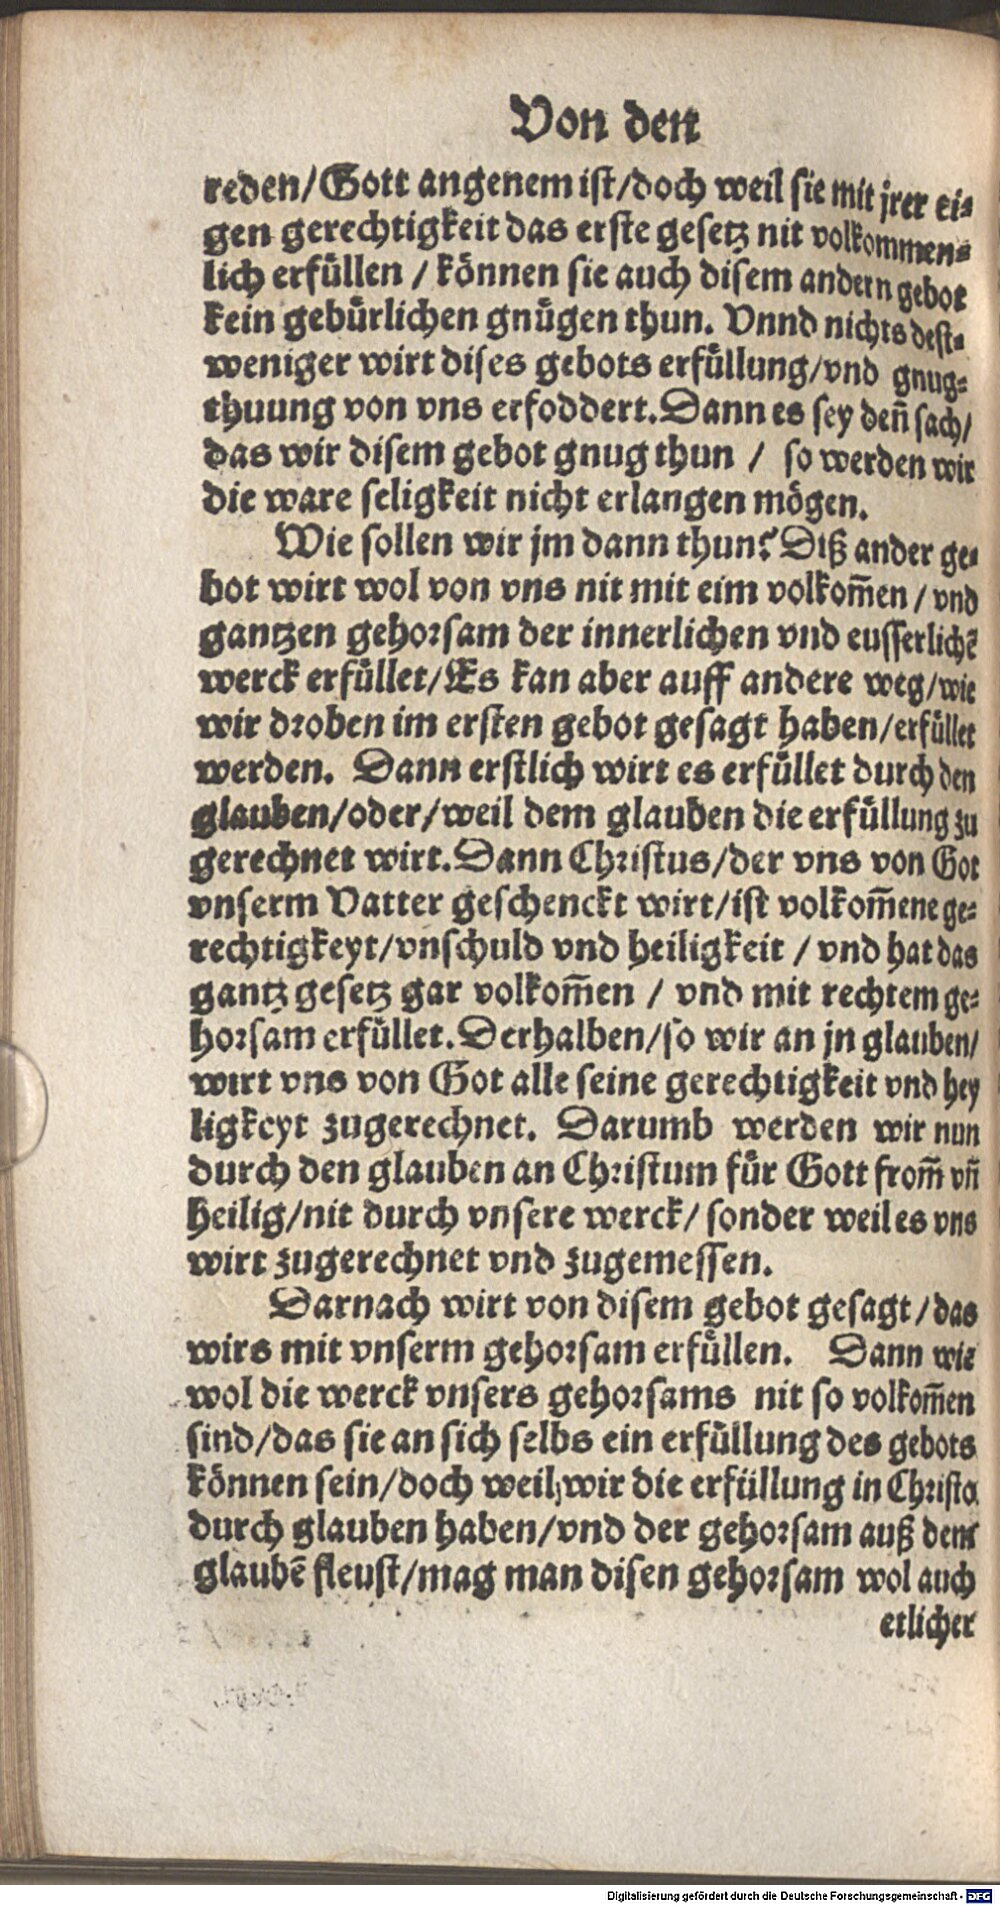 Von den
reden/Gott angenem ist/doch weil sie mit jrer ei⸗
gen gerechtigkeit das erste gesetz nit volkommen⸗
lich erfüllen / können sie auch disem andern gebot
kein gebürlichen gnügen thun. Vnnd nichts dest⸗
weniger wirt dises gebots erfüllung/vnd gnug⸗
thuung von vns erfoddert. Dann es sey deñ sach/
das wir disem gebot gnug thun / so werden wir
die ware seligkeit nicht erlangen mögen.
Wie sollen wir jm dann thun? Diß ander ge⸗
bot wirt wol von vns nit mit eim volkom̃en / vnd
gantzen gehorsam der innerlichen vnd eusserlichẽ
werck erfüllet/Es kan aber auff andere weg/wie
wir droben im ersten gebot gesagt haben/erfüllet
werden. Dann erstlich wirt es erfüllet durch den
glauben/oder/weil dem glauben die erfüllung zu
gerechnet wirt. Dann Christus/der vns von Got
vnserm Vatter geschenckt wirt/ist volkom̃ene ge⸗
rechtigkeyt/vnschuld vnd heiligkeit / vnd hat das
gantz gesetz gar volkom̃en / vnd mit rechtem ge⸗
horsam erfüllet. Derhalben/so wir an jn glauben/
wirt vns von Got alle seine gerechtigkeit vnd hey
ligkeyt zugerechnet. Darumb werden wir nun
durch den glauben an Christum für Gott from̃ vñ
heilig/nit durch vnsere werck/ sonder weil es vns
wirt zugerechnet vnd zugemessen.
Darnach wirt von disem gebot gesagt/das
wirs mit vnserm gehorsam erfüllen. Dann wie
wol die werck vnsers gehorsams nit so volkom̃en
sind/das sie an sich selbs ein erfüllung des gebots
können sein/doch weil wir die erfüllung in Christo
durch glauben haben/vnd der gehorsam auß dem
glaubẽ fleust/mag man disen gehorsam wol auch
etlicher
Digitalisierung gefördert durch die Deutsche Forschungsgemeinschaft - DFG